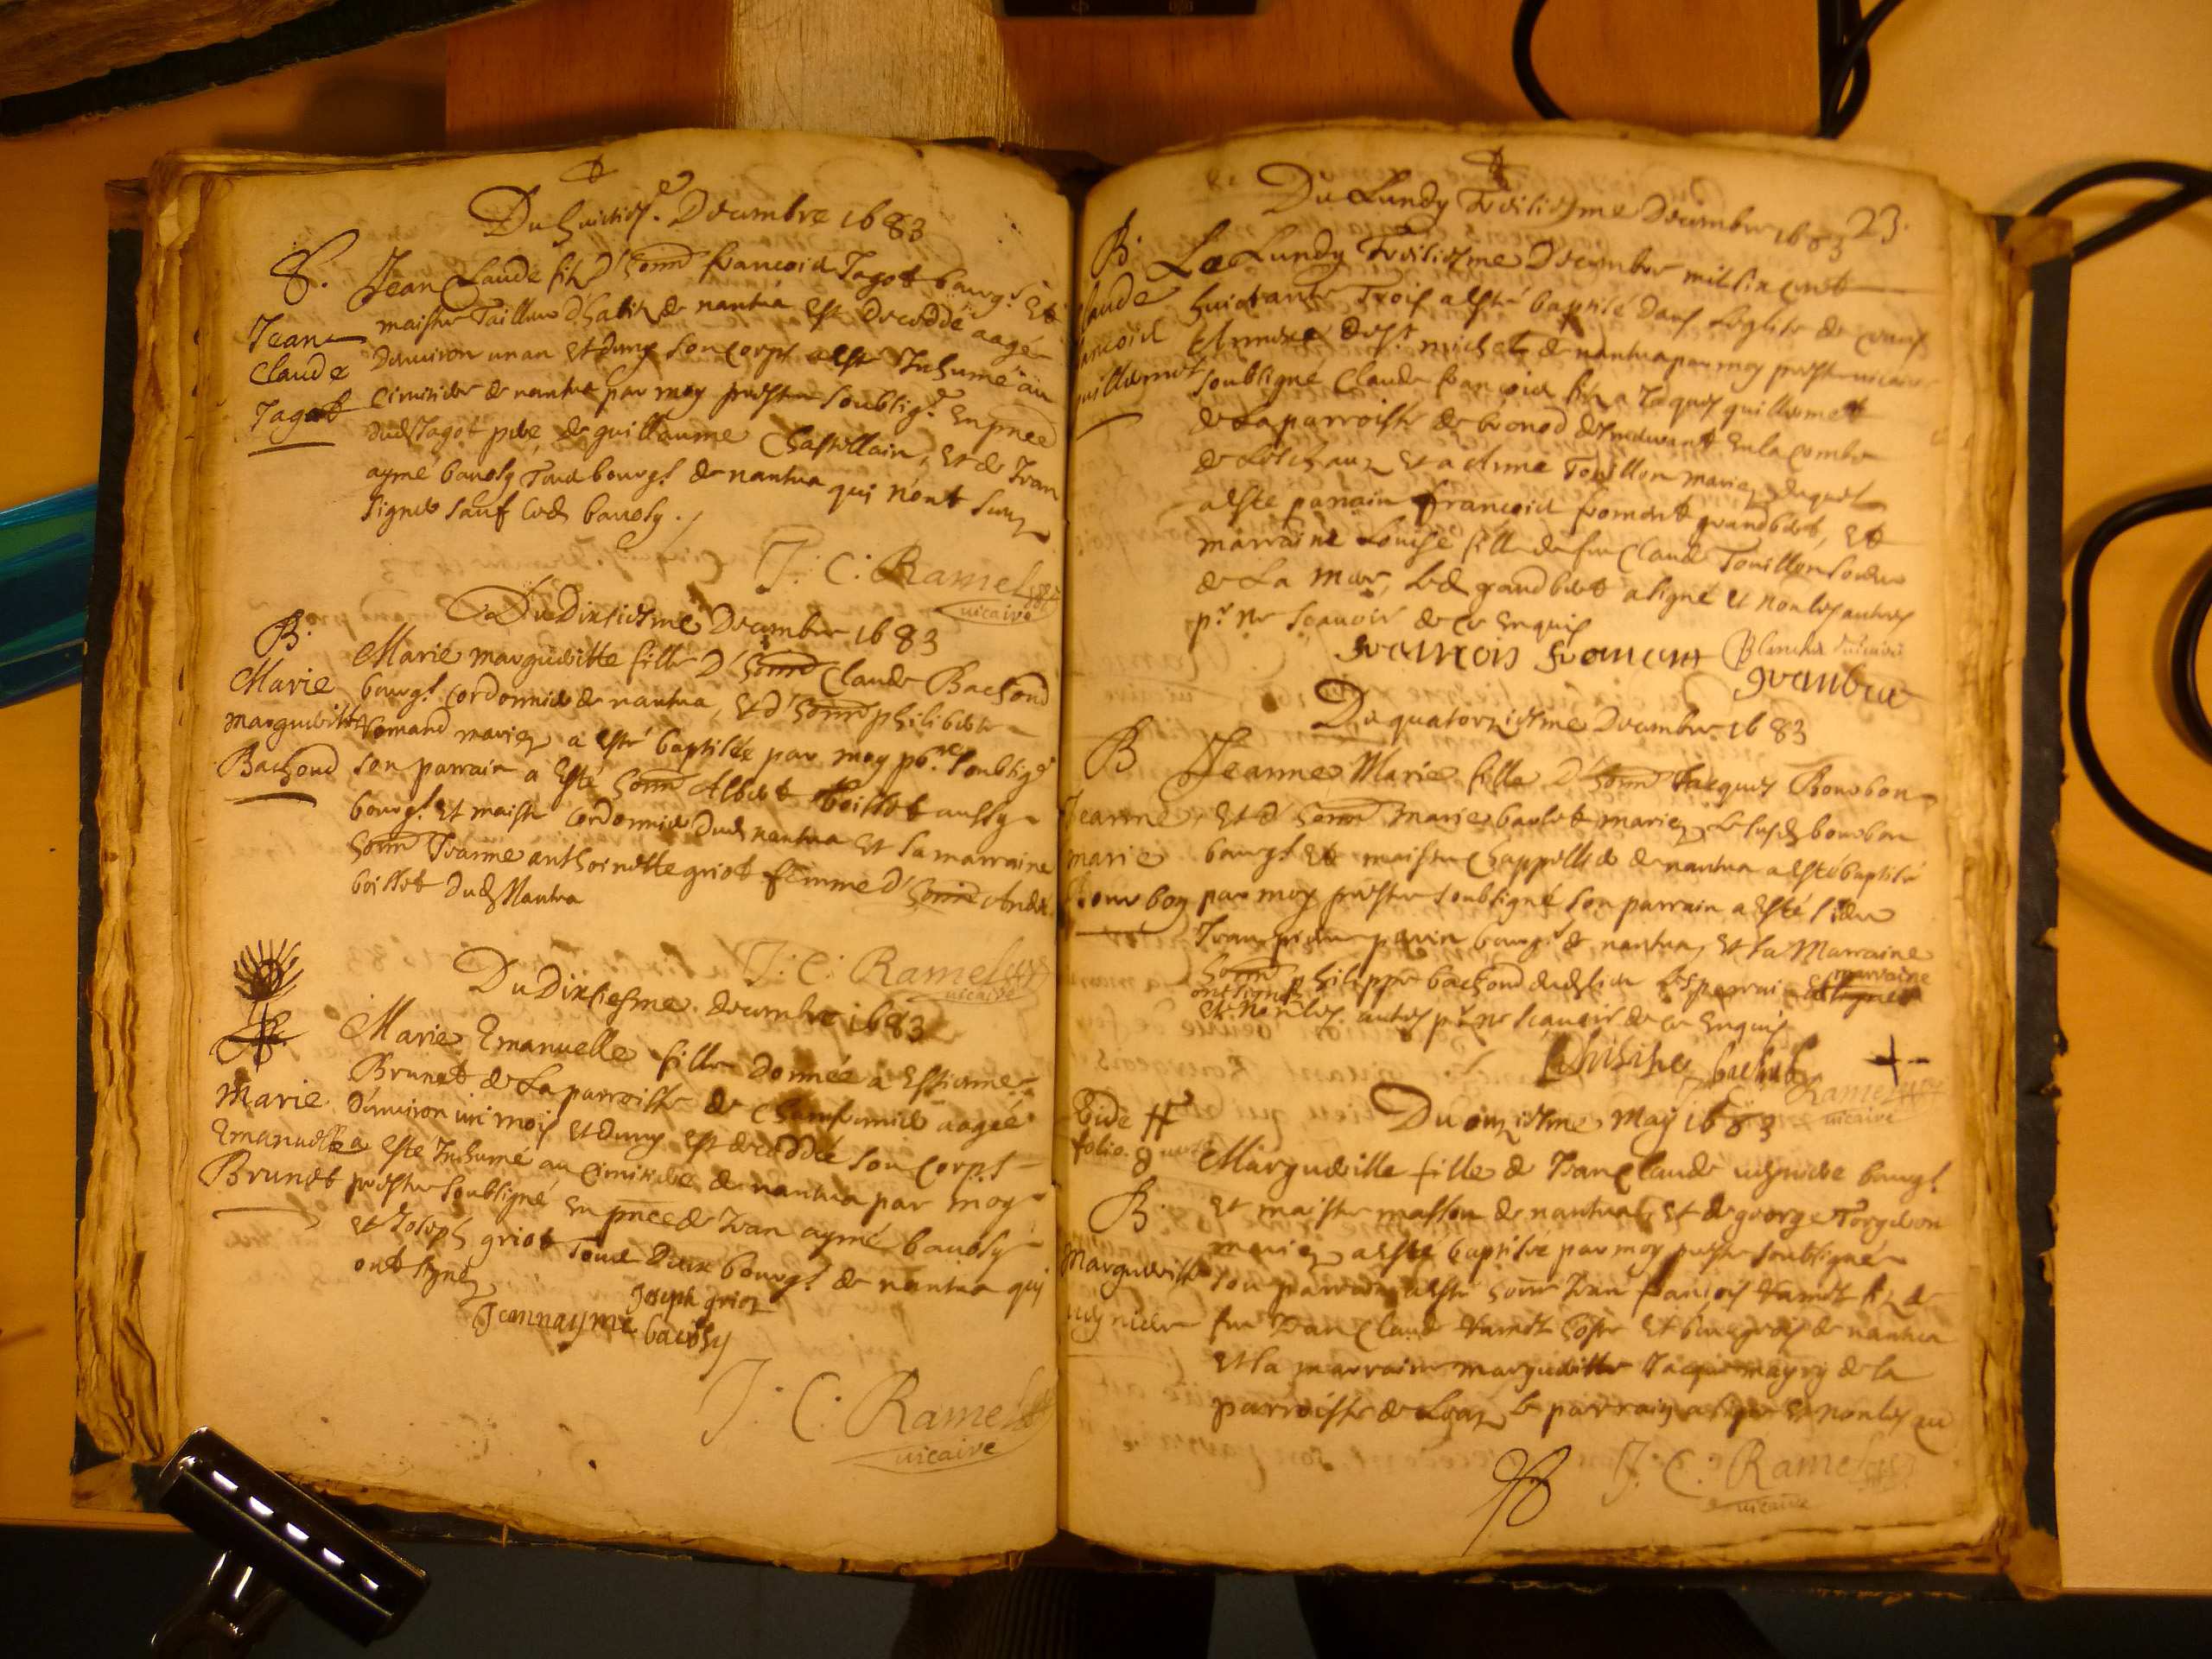 Du huicties.e Decembre 1683
S.
Jean
Claude
Jagot
Jean Claude filz d'honn francois Jagot bourg.s Et
maistre Tailleur d'habitz de nantua Est deceddé aagé
denviron un an Et demy son corps a esté Inhumé au
Cimitiere de nantua par moy prestre soubsig.é En pnce
dud Jagot pere, de guillaume Chastellain, et de Jean
ayme baudsy Tous bourgs de nantua qui n'ont sceuz
signer sauf led baudsy ./
J. C. Ramel
vicaire
Du Dixiesme Decembre 1683
B.
Marie
Margueritte
Bachod
Marie margueritte fille D'honn Claude Bachod
bourgs cordonnier de nantua, Et d'honn philiberte
Romand mariez a esté baptisée par moy pbre soubsig.é
son parrain a Esté honn Albert boillet aussy
bourgs Et maistre cordonnier dud nantua Et sa marraine
honn Jeanne anthoinette griot femme d'honn André
boillet dud Nantua
J. C. Ramel
vicaire
Du Dixiesme decembre 1683
S.
Marie
Emanuelle
Brunet
Marie Emanuelle fille donnée a Estienne
Brunet de La parroisse de Chamfromier aagée
D'environ un mois Et demy Est deceddée son corps
a esté Inhumé au Cimitiere de nantua par moy
prestre soubsigné En pnce de Jean aymé baudsy
et Joseph griot Tous Deux bourgs de nantua qui
ont signez
Joseph griot
Jean ayme baudsy
J. C. Ramel
vicaire
23.
Du Lundy Treiziesme Decembre 1683
B.
Claude
francois
guillermet
Le Lundy Treiziesme Decembre mil six cent
huictante Trois a esté baptisé dans L'eglise de
Annexe de St. michel de nantua par moy prestre vicaire
soubsigné Claude francois filz a Jaques guillermet
de La parroisse de demeurant En la combe
de Et a Anne Touillon mariez duquel
a esté parrain francois froment grandbert, Et
marraine Louise fille de feu Claude Touillon
de La Mar, led grandbert a signé et non les autres
pr. ne scavoir de ce Enquis
francois froment
vicaire
Du quatorziesme Decembre 1683
B
Jeanne
marie
Bourbon
Jeanne Marie fille D'honn Jacques Bourbon
Et d'honn marie barlet mariez Le susd bourbon
bourgs Et maistre Chappellier de nantua a esté baptisé
par moy prestre soubsigné son parrain a Esté sieur
Jean pierre bourgs de nantua, Et la Marraine
honn philippe bachod dud lieu Les parrain Et marraine
ont signé
Et non les autres pr. ne scavoir de ce Enquis
Ramel
vicaire
Vide
folio. 8
Du onziesme May 1683
B.
Margueritte
Margueritte fille de Jean Claude bourgs
Et maistre masson de nantua, Et de george
mariez a esté baptisée par moy prestre soubsigné
son parrain a esté honn Jean francois filz de
feu Jean Claude hoste Et bourgeois de nantua
Et la marraine margueritte de la
parroisse de Le parrain a signé Et non les au
J. C. Ramel
vicaire